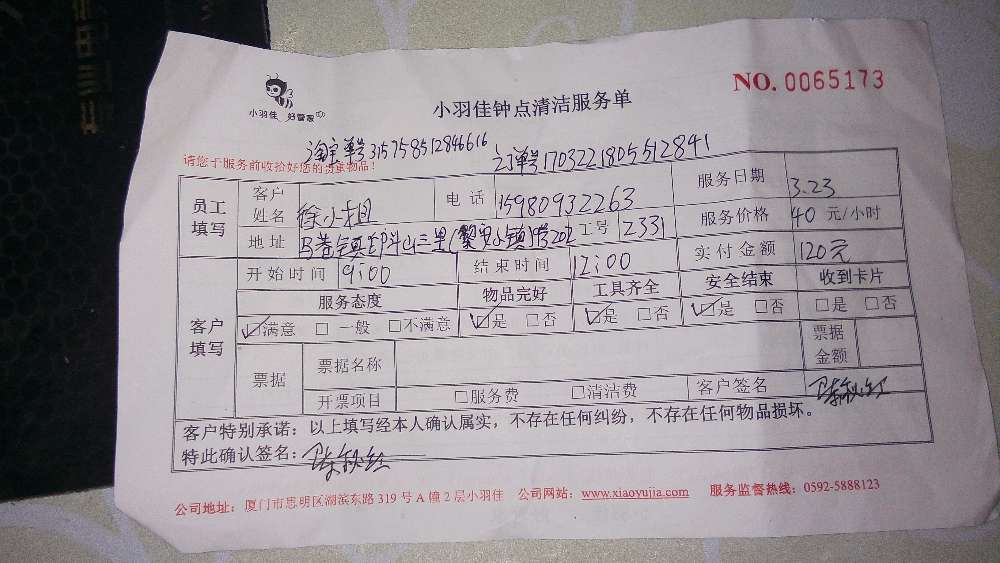 小羽佳 好管家
小羽佳钟点清洁服务单
NO. 0065173
淘宝单号315758512846616 订单号1703221805512841
请您于服务前收拾好您的贵重物品!
员工填写 客户姓名 徐小姐 电话 15980932263 服务日期 3.23
地址 马巷镇郎斗山三里(黎安小镇) 202 工号 2331 服务价格 40 元/小时
客户填写 开始时间 9:00 结束时间 12:00 实付金额 120元
服务态度 物品完好 工具齐全 安全结束 收到卡片
☑满意 □ 一般 □不满意 ☑是 □否 ☑是 □否 ☑是 □否 □是 □否
票据 票据名称 票据金额
开票项目 □服务费 □清洁费 客户签名 陈秋红
客户特别承诺:以上填写经本人确认属实,不存在任何纠纷,不存在任何物品损坏。
特此确认签名: 陈秋红
公司地址:厦门市思明区湖滨东路 319 号 A 幢 2 层小羽佳 公司网站:www.xiaoyujia.com 服务监督热线:0592-5888123